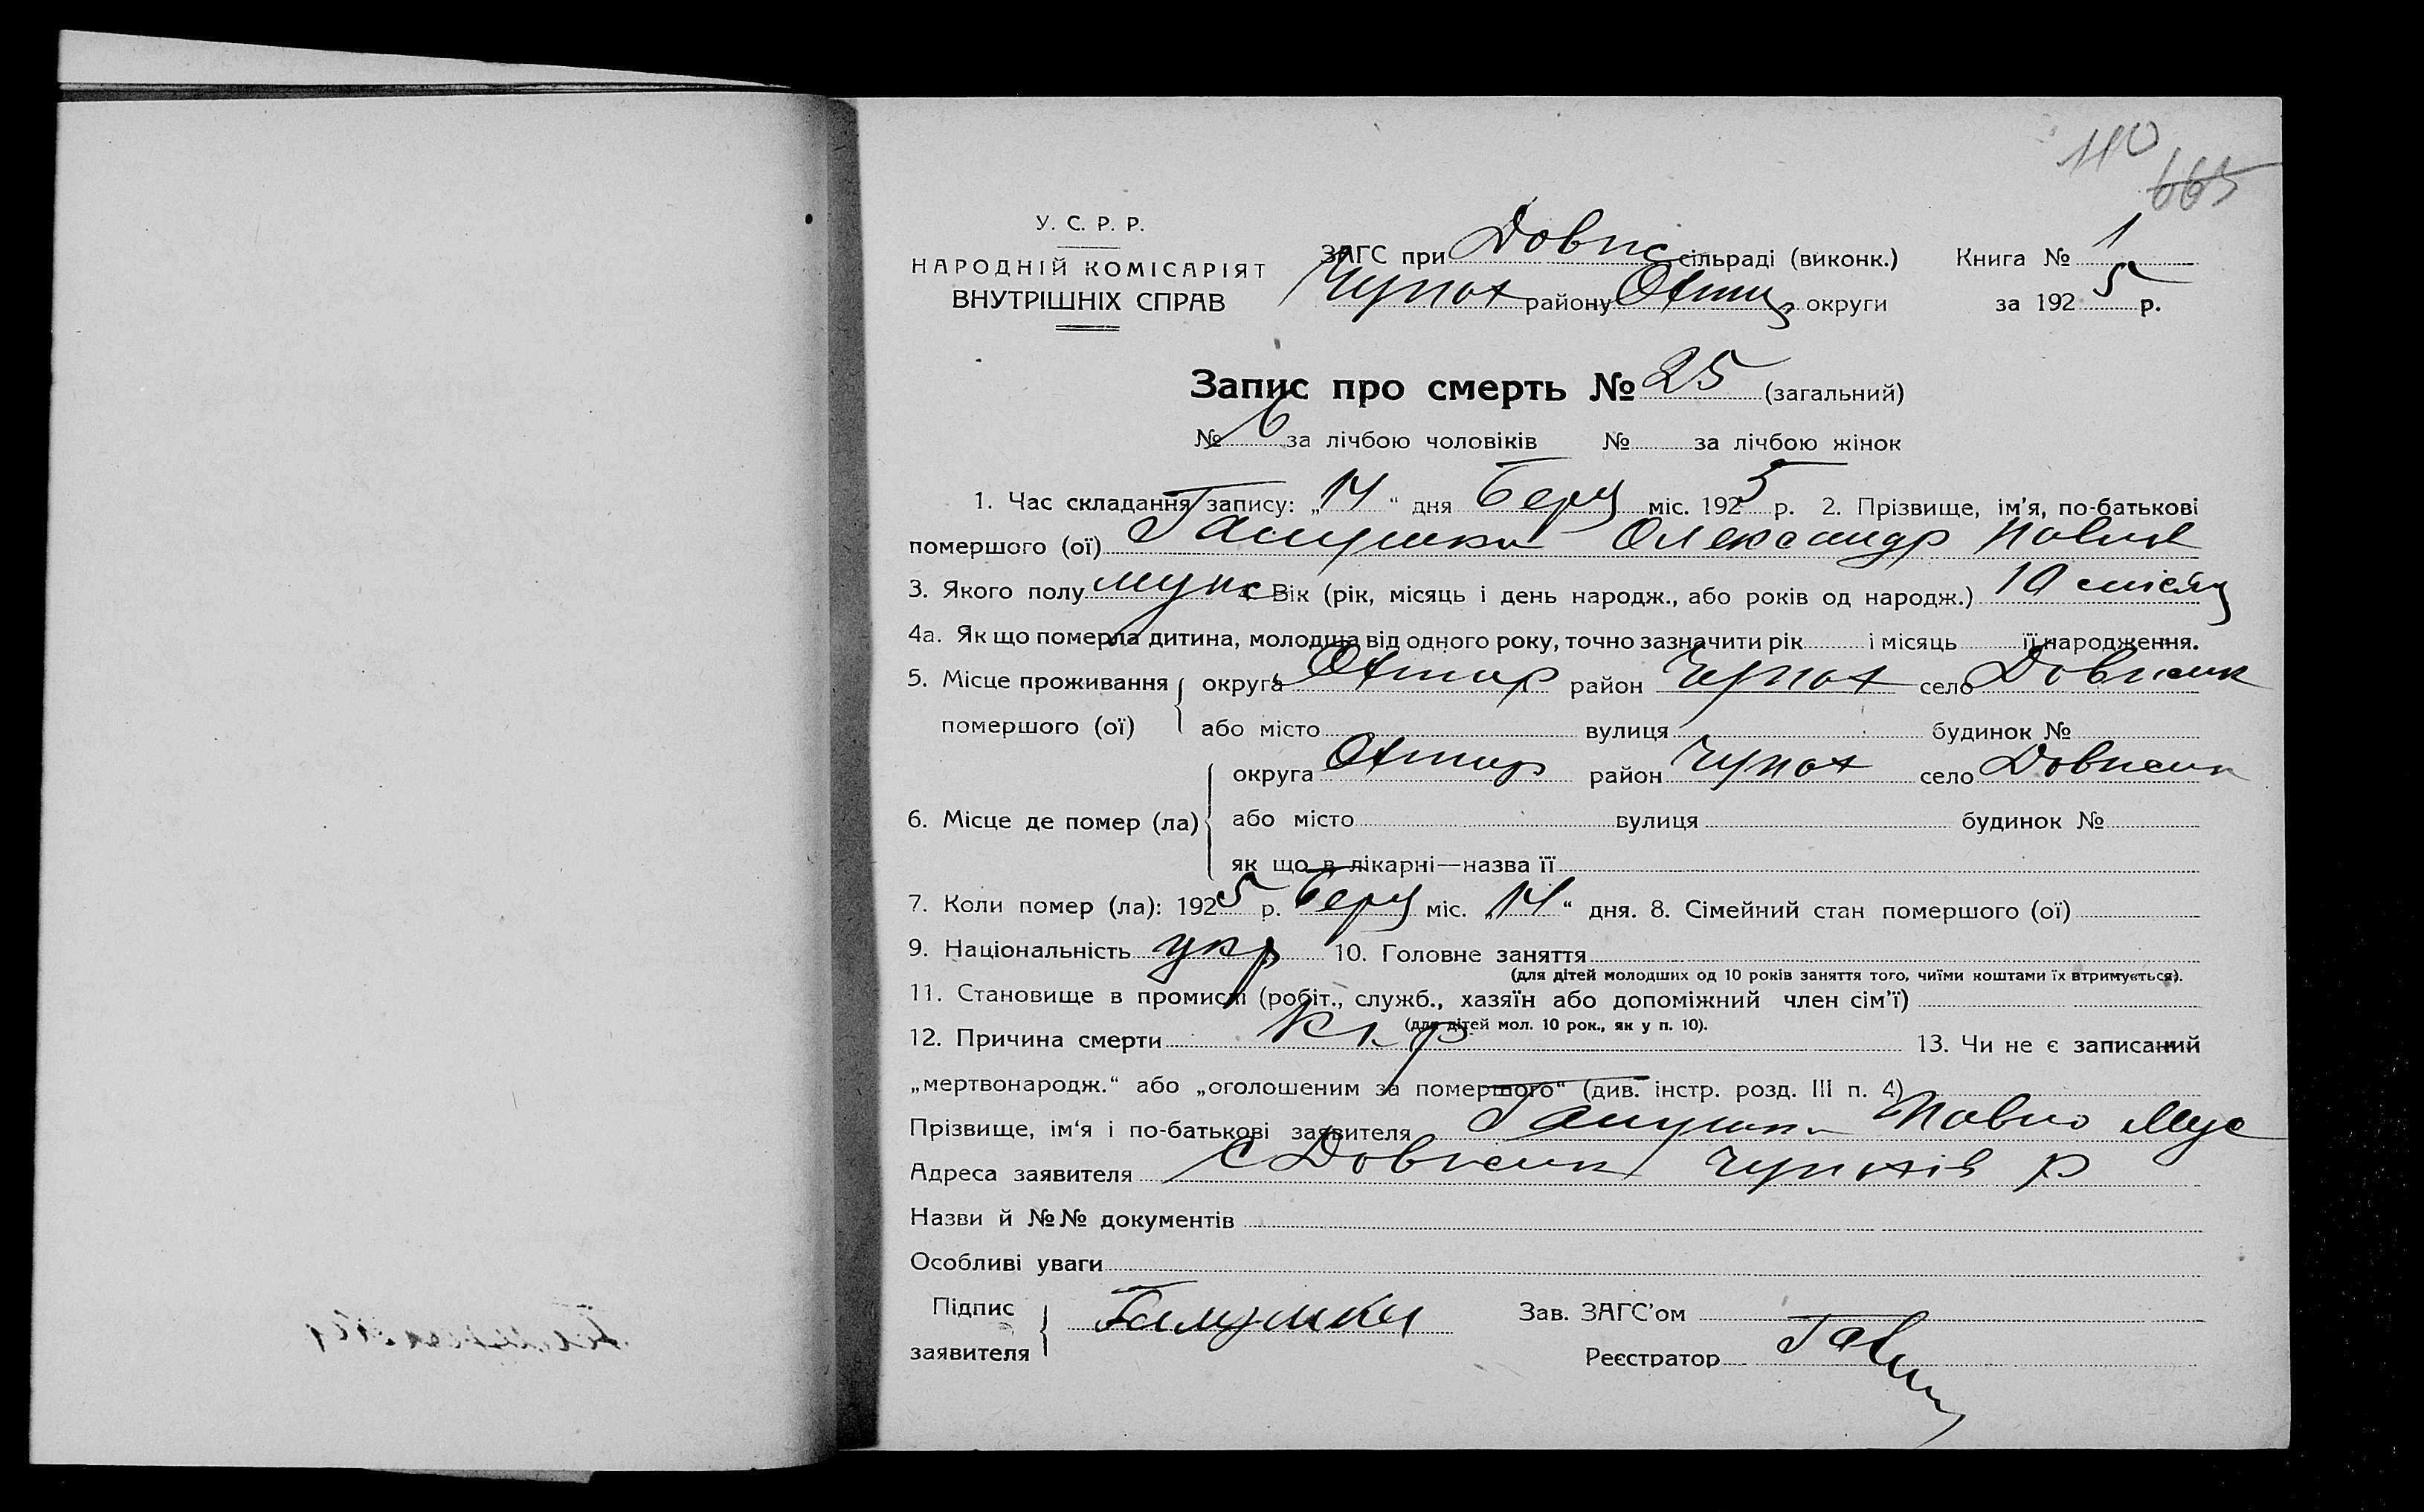 110
665
У. С. Р. Р.
НАРОДНІЙ КОМІСАРІЯТ
ВНУТРІШНІХ СПРАВ
ЗАГС при Довпс сільраді (виконк.) Книга № 1
Чупах району Охтир округи за 1925 р.
Запис про смерть № 25 (загальний)
№ 6 за лічбою чоловіків № за лічбою жінок
1. Час складання запису: „14“ дня Берц міс. 1925 р. 2. Прізвище, ім'я, по-батькові
помершого (ої) Галушка Олександр Павлов
3. Якого полу муж Вік (рік, місяць і день народж., або років од народж.) 10 місяц
4а. Як що померла дитина, молодша від одного року, точно зазначити рік і місяць її народження.
5. Місце проживання помершого (ої) округа Охтир район Чупах село Довжик
або місто вулиця будинок №
6. Місце де помер (ла) округа Охтир район Чупах село Довжик
або місто вулиця будинок №
як що в лікарні—назва її
7. Коли помер (ла): 1925 р. Берц міс. „14“ дня. 8. Сімейний стан помершого (ої)
9. Національність укр 10. Головне заняття
(для дітей молодших од 10 років заняття того, чиїми коштами їх втримується).
11. Становище в промислі (робіт., служб., хазяїн або допоміжний член сім'ї)
(для дітей мол. 10 рок., як у п. 10).
12. Причина смерти 13. Чи не є записаний
„мертвонародж.“ або „оголошеним за помершого“ (див. інстр. розд. III п. 4)
Прізвище, ім'я і по-батькові заявителя Галушка Павло Мус
Адреса заявителя С Довжик Чупахів р
Назви й №№ документів
Особливі уваги
Підпис заявителя Галушка Зав. ЗАГС'ом
Реєстратор